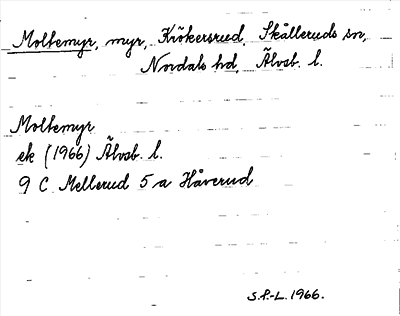 Moltemyr, myr, Krökersrud, Skålleruds sn,
Nordals hd, Älvsb. l.
Moltemyr
ek (1966) Älvsb. l.
9 C Mellerud 5 a Håverud
S.P.-L. 1966.